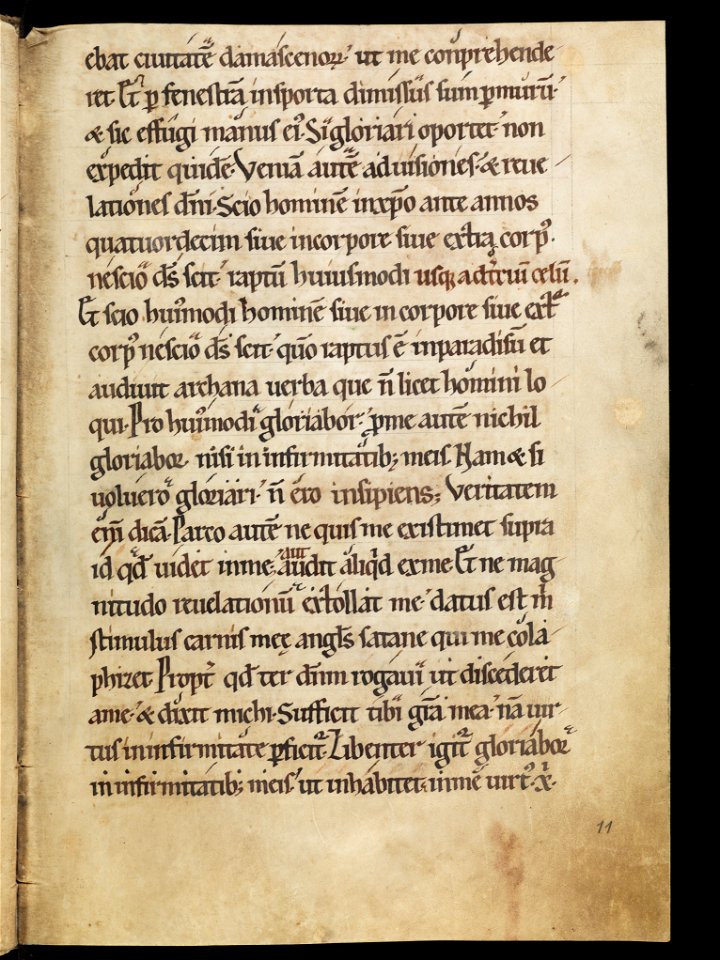 ebat ciuitatē damascenoꝝ. ut me cōprehende
ret. Et ꝑ fenestrā insporta dimissus sum ꝑ murū.
& sic effugi manus eiꝰ. Si gloriari oportet. non
expedit quidē. Veniā autē ad uisiones. & reue
lationes dñi. Scio hominē in xp̄o ante annos
quatuordecim siue incorpore siue ext̄ corpꝰ.
nescio ds̄ scit. raptū huiusmodi usq; ad t̄ciū celū.
Et scio huiꝰmodi hominē siue in corpore siue ext̄
corpꝰ nescio ds̄ scit. qūo raptus ē inparadisū et
audiuit archana uerba que ñ licet homini lo
qui. Pro huiꝰmodi gloriabor. ꝓme autē nichil
gloriabor. nisi in infirmitatib; meis. Nam & si
uoluero gloriari. ñ ero insipiens; Veritatem
eni dicā. Parco autē ne quis me existimet supra
id qđ uidet inme. aut audit aliqͥd exme. Et ne mag
nitudo reuelationū extollat me. datus est m̄
stimulus carnis meę angls̄ satane qui me cola
phizet. Propt̄ qđ ter dñm rogaui ut discederet
ame. & dixit michi. Sufficit tibi gr̄a mea. nā uir
tus in infirmitate ꝑficit̄. Libenter igit̄ gloriabor
in infirmitatib; meis. ut inhabitet inme uirtꝰ x̄.
11